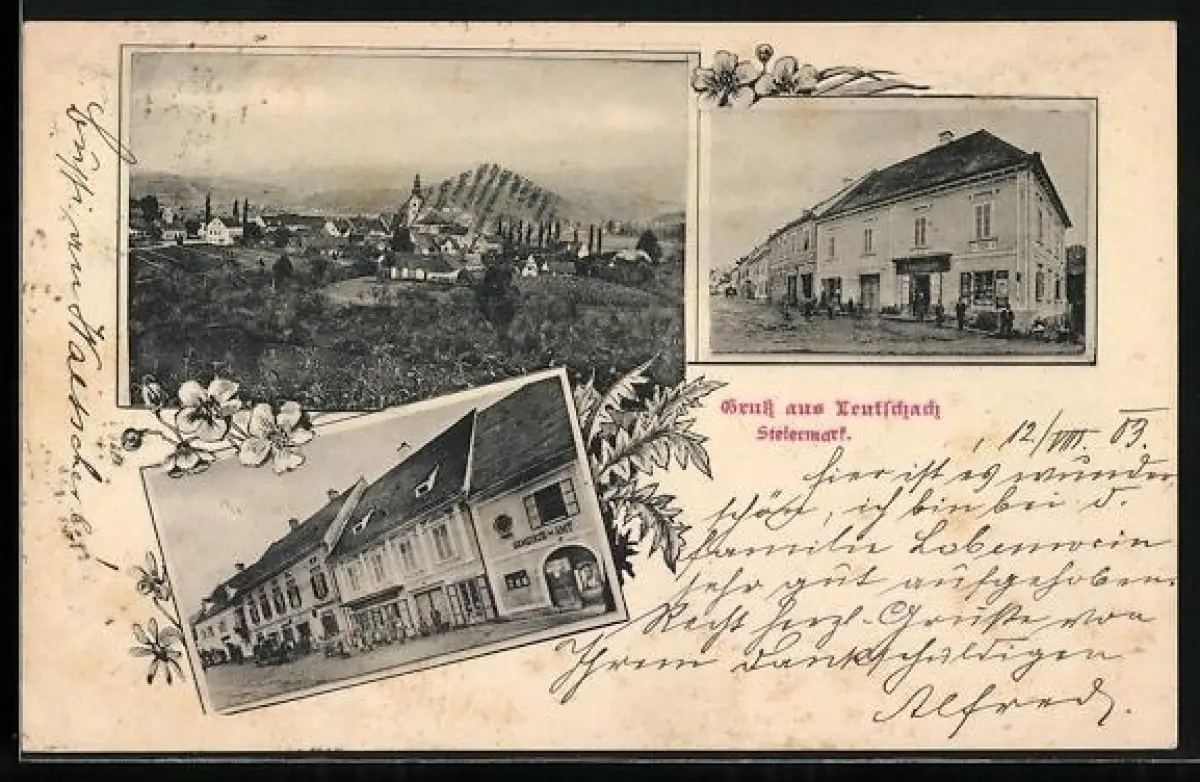 Gruß aus Leutschach
Steiermark.
12/VIII. 03.
hier ist es wunder
schön, ich bin bei d.
Familie Lobenwein
sehr gut aufgehoben.
Recht herzl. Grüße von
Ihrem Dankschuldigen
Alfred.